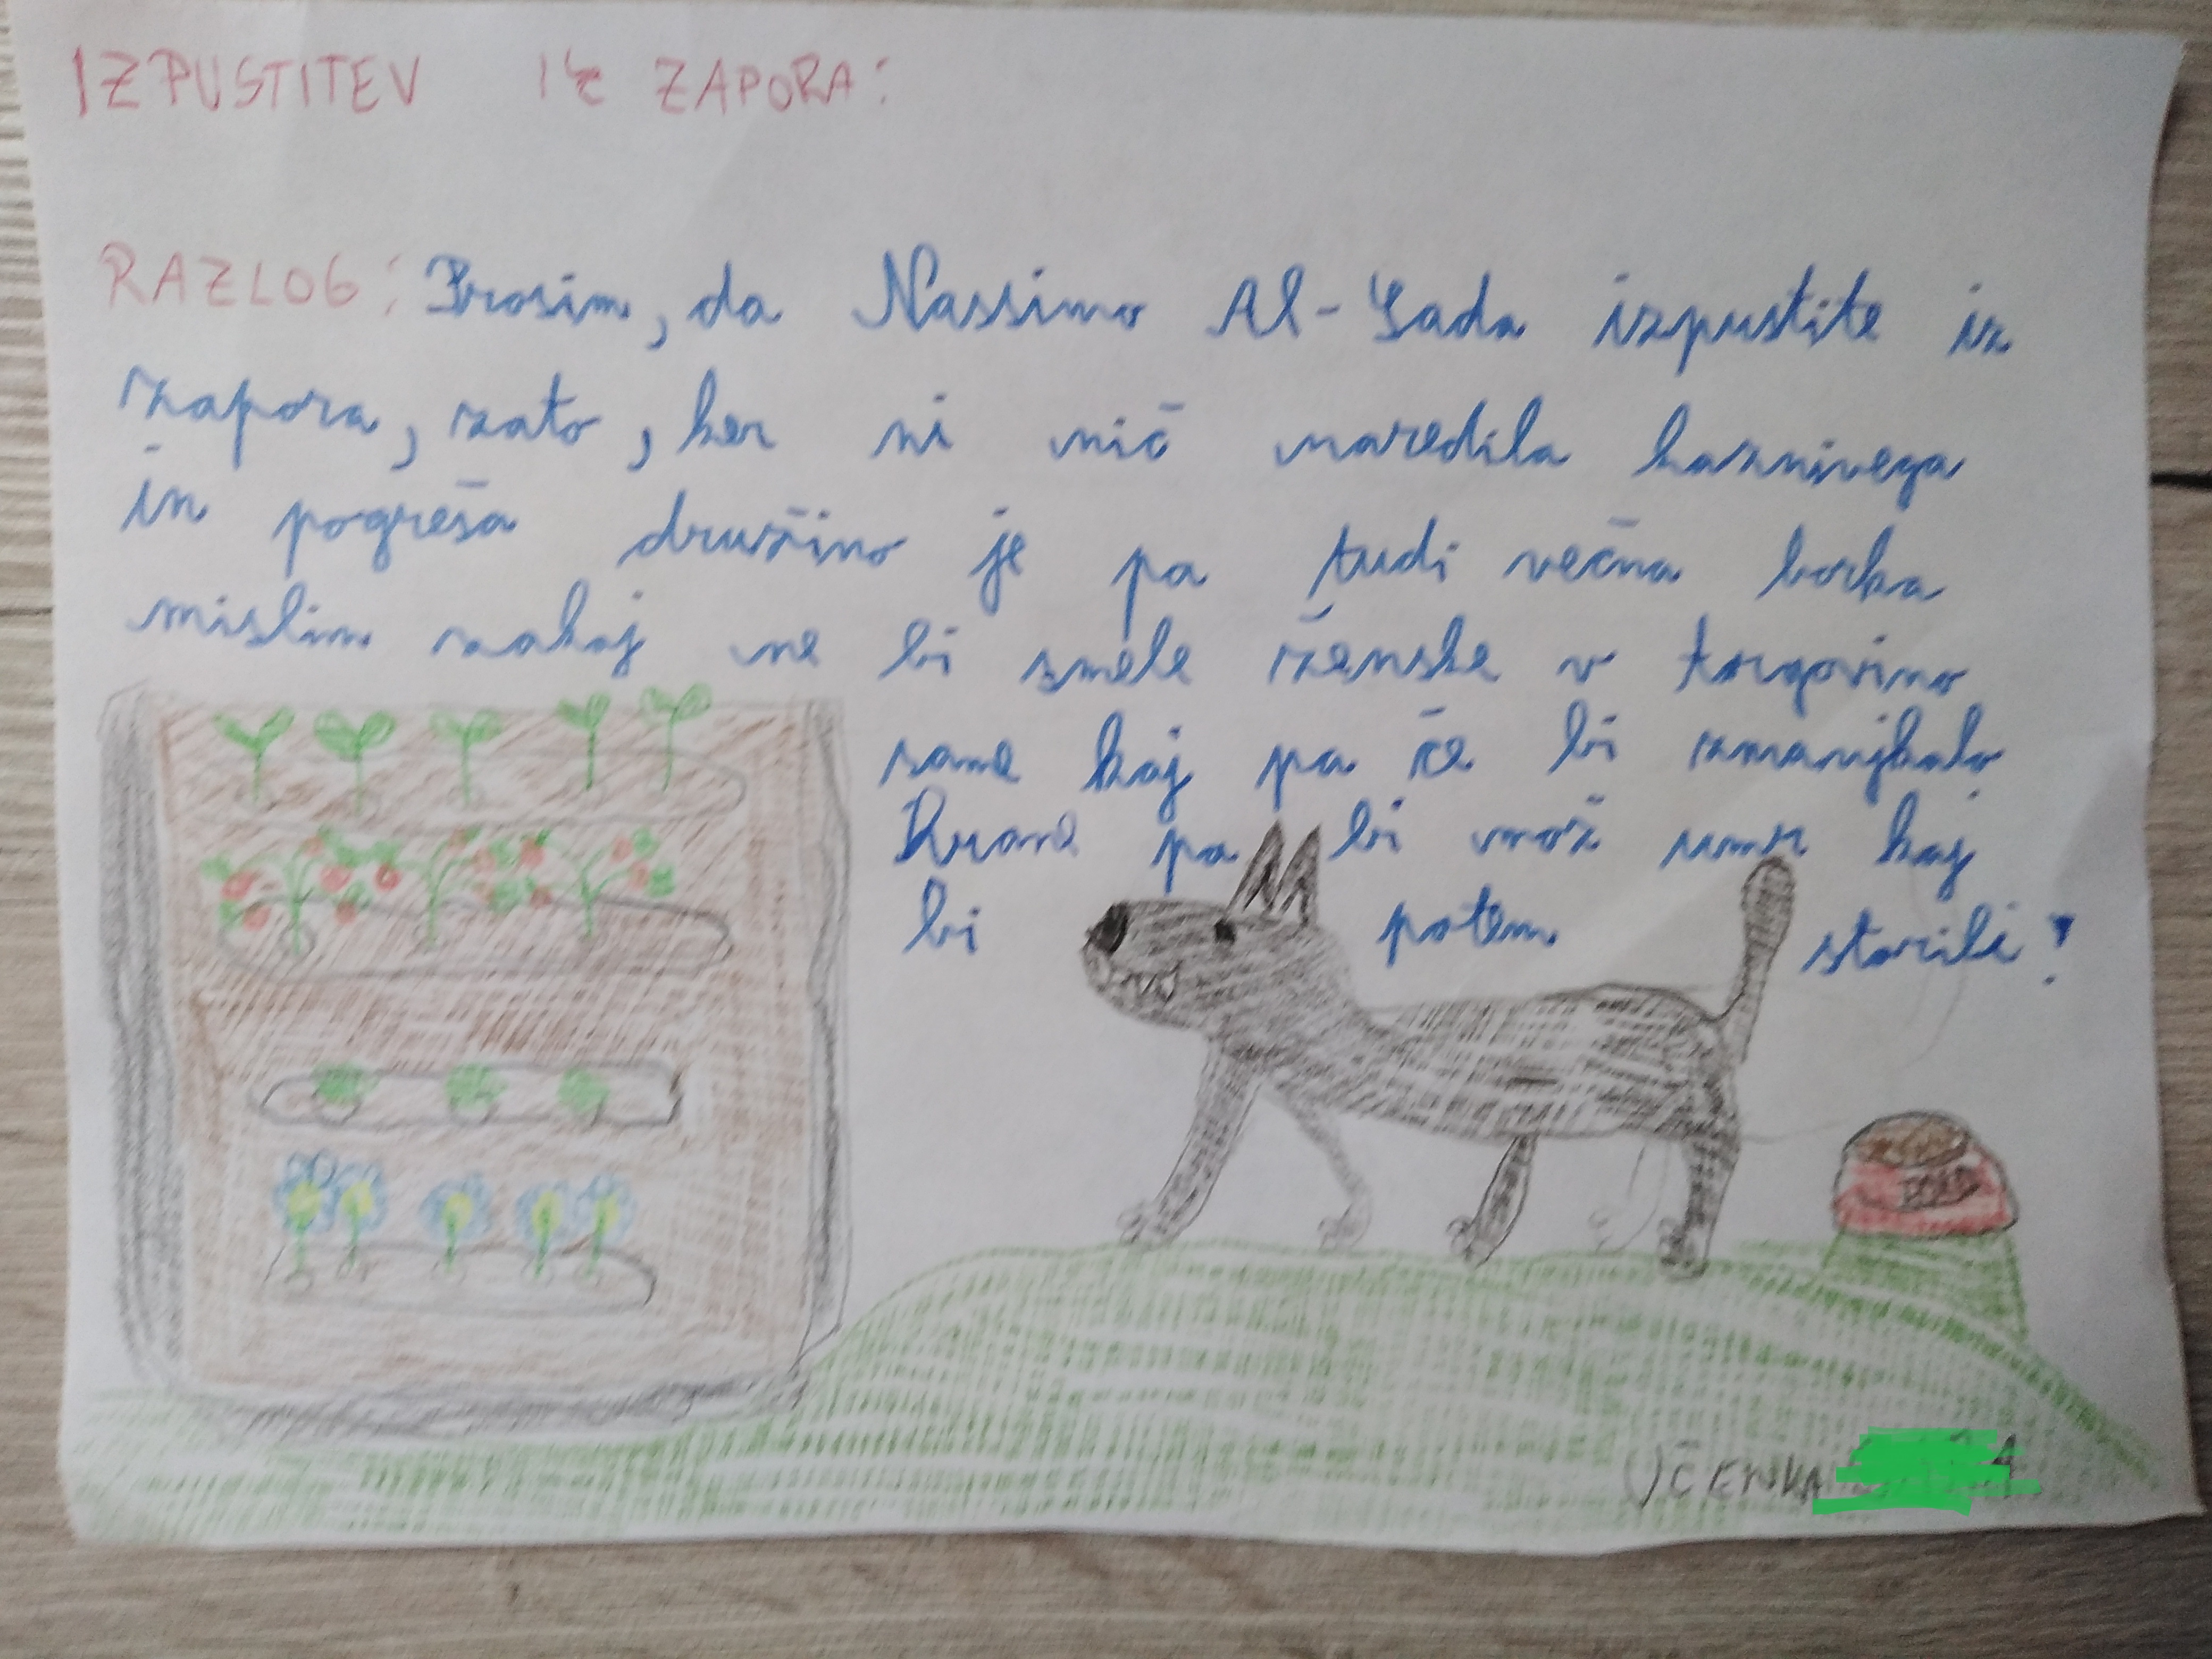 IZPUSTITEV IZ ZAPORA:
RAZLOG: Prosim, da Nassimo Al-Sada izpustite iz
zapora, zato, ker ni nič naredila kaznivega
in pogreša družino je pa tudi večna borka
mislim zakaj ne bi smele ženske v torgovino
same kaj pa če bi zmanjkalo
hrane pa bi mož umrl kaj
bi potem storili?
UČENKA